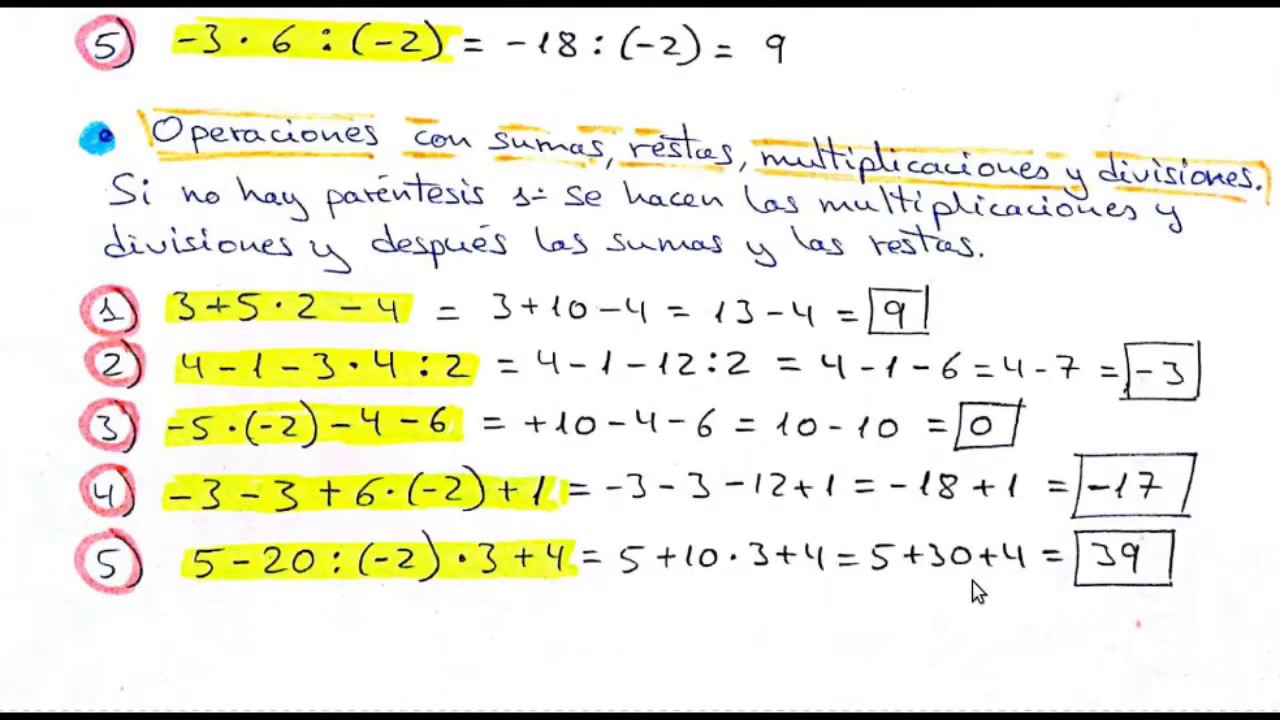 5) -3 · 6 : (-2) = -18 : (-2) = 9
Operaciones con sumas, restas, multiplicaciones y divisiones.
Si no hay paréntesis 1º se hacen las multiplicaciones y
divisiones y después las sumas y las restas.
1) 3+5·2-4 = 3+10-4 = 13-4 = 9
2) 4-1-3·4:2 = 4-1-12:2 = 4-1-6=4-7 = -3
3) -5·(-2)-4-6 = +10-4-6 = 10-10 = 0
4) -3-3+6·(-2)+1 = -3-3-12+1 = -18+1 = -17
5) 5-20:(-2)·3+4 = 5+10·3+4 = 5+30+4 = 39